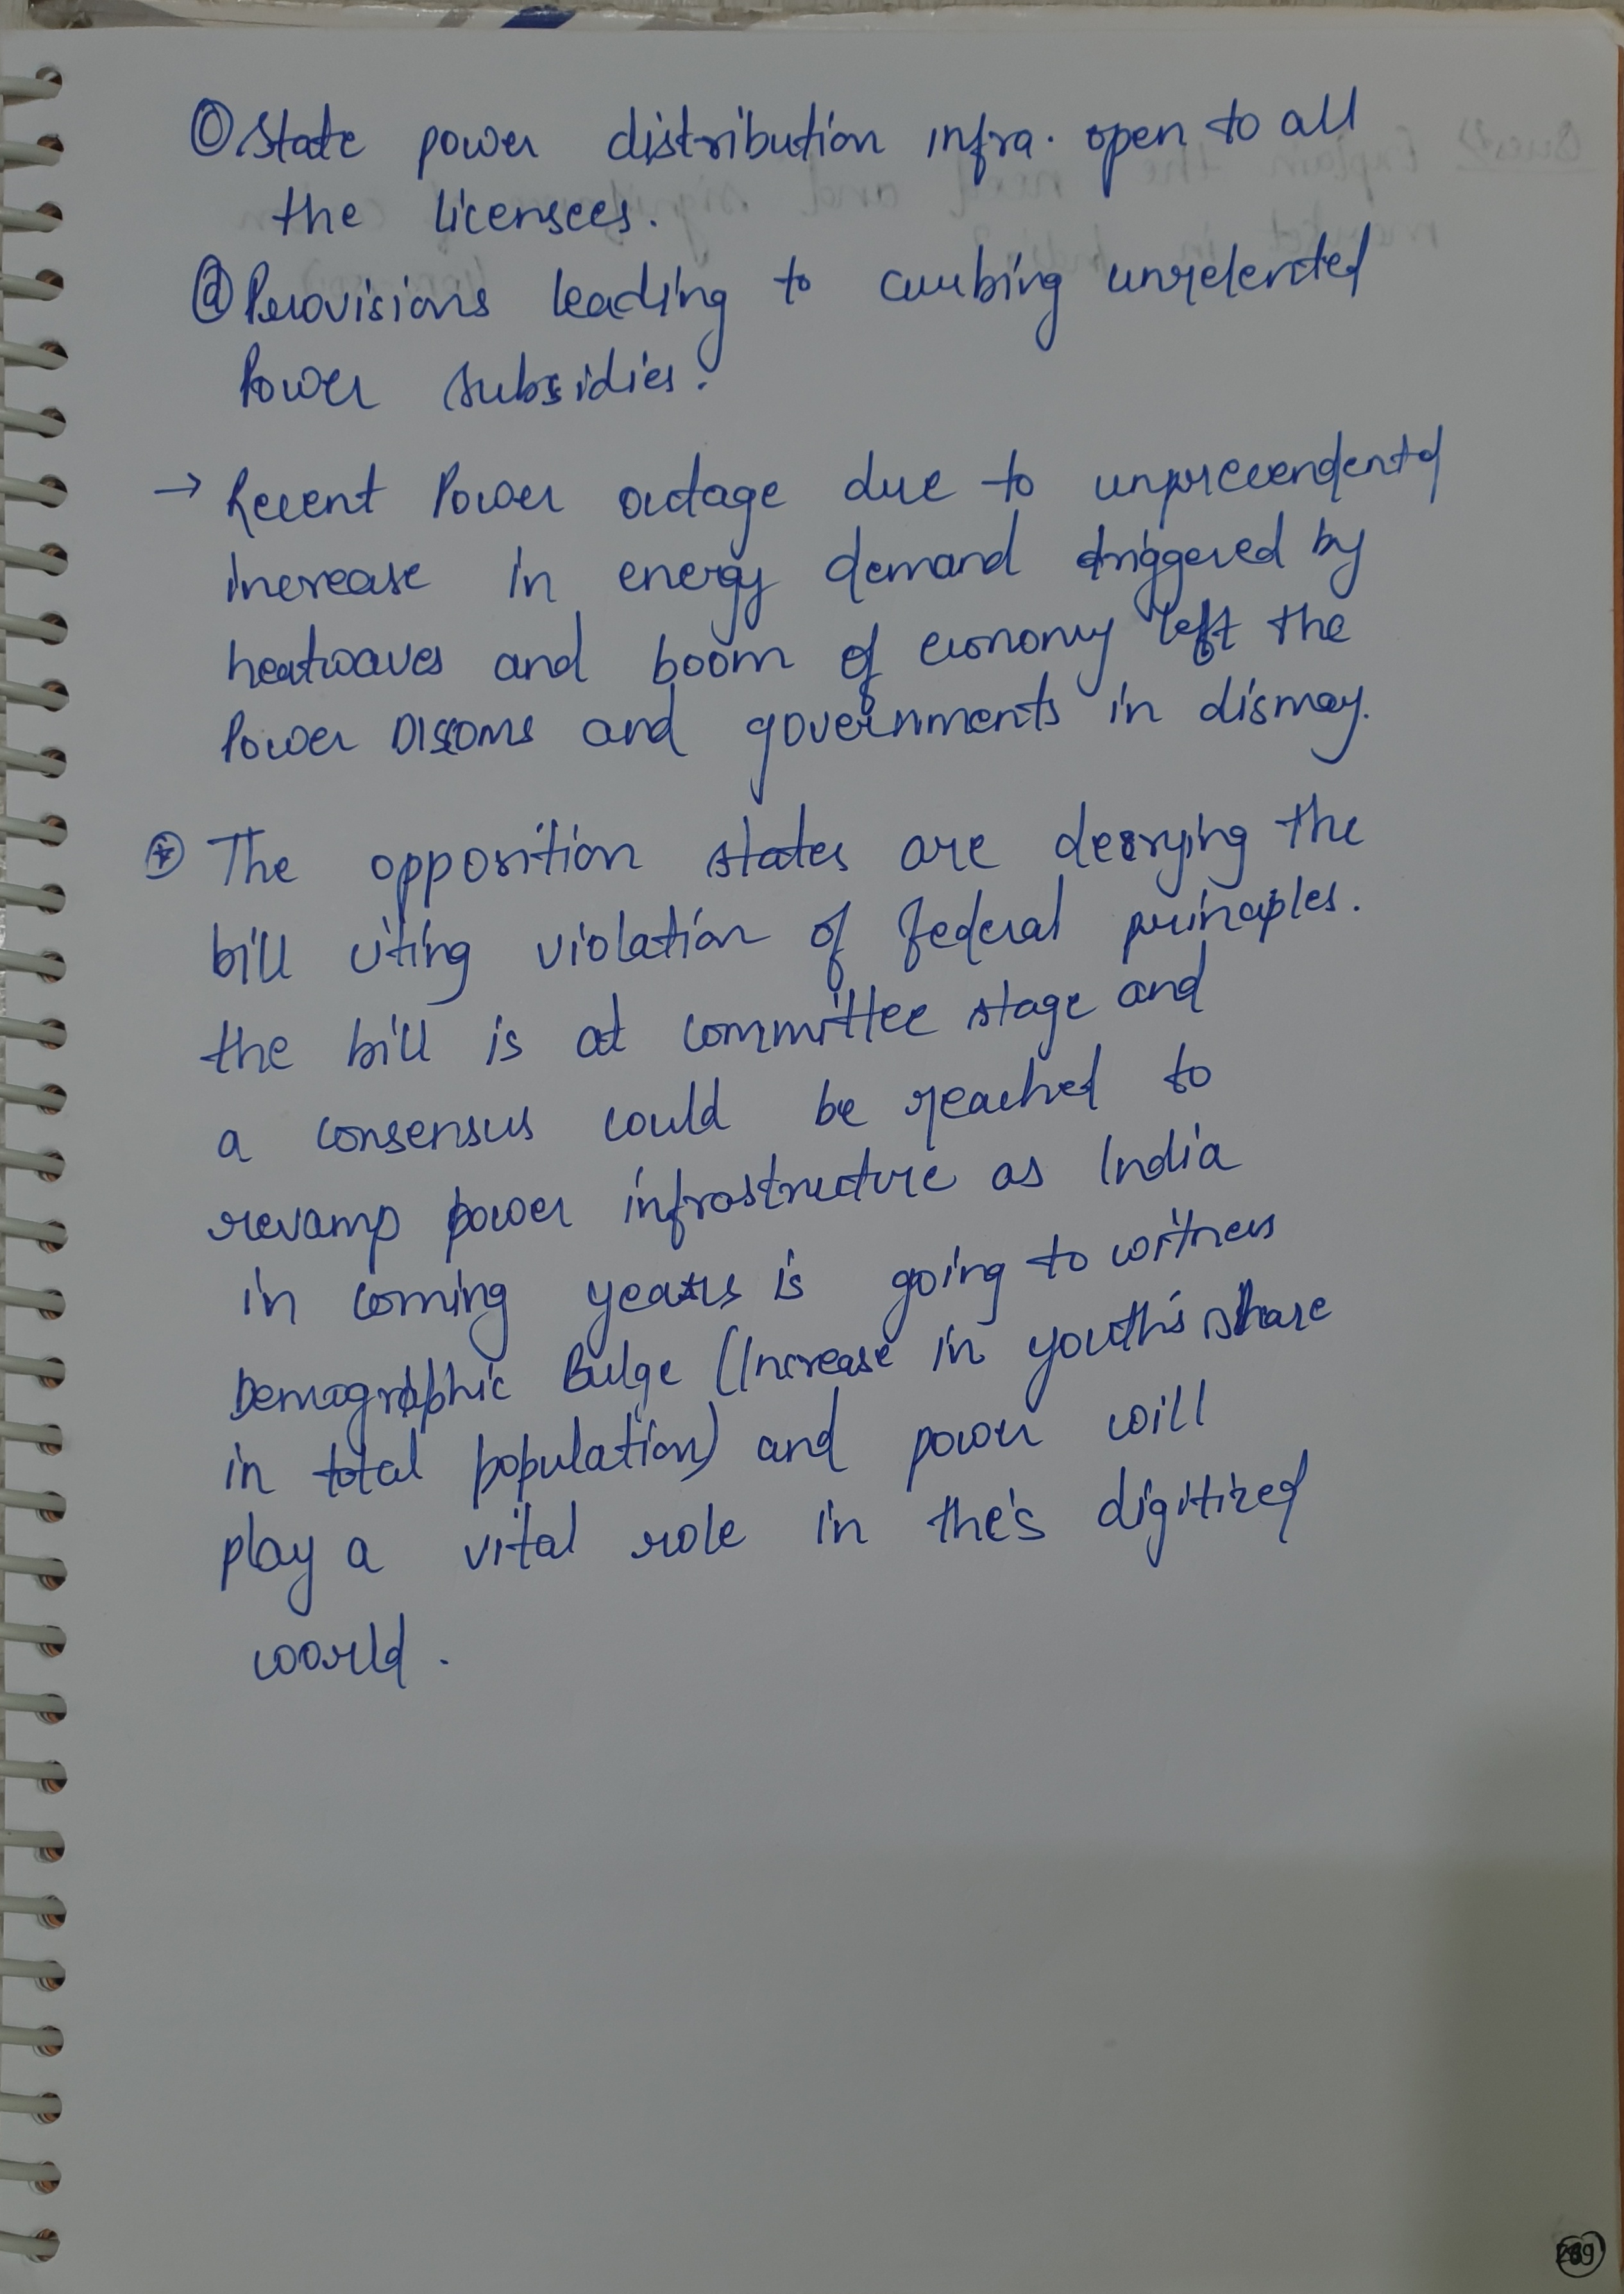 ① State power distribution infra. open to all
the licensees.
② Provisions leading to curbing unrelented
Power subsidies.
→ Recent Power outage due to unprecendented
increase in energy demand triggered by
heatwaves and boom of economy left the
Power DISCOMS and governments in dismay.
⊛ The opposition states are decrying the
bill citing violation of federal principles.
the bill is at committee stage and
a consensus could be reached to
revamp power infrastructure as India
in coming years is going to witness
Demographic Bulge (Increase in youth's share
in total population) and power will
play a vital role in this digitized
world.